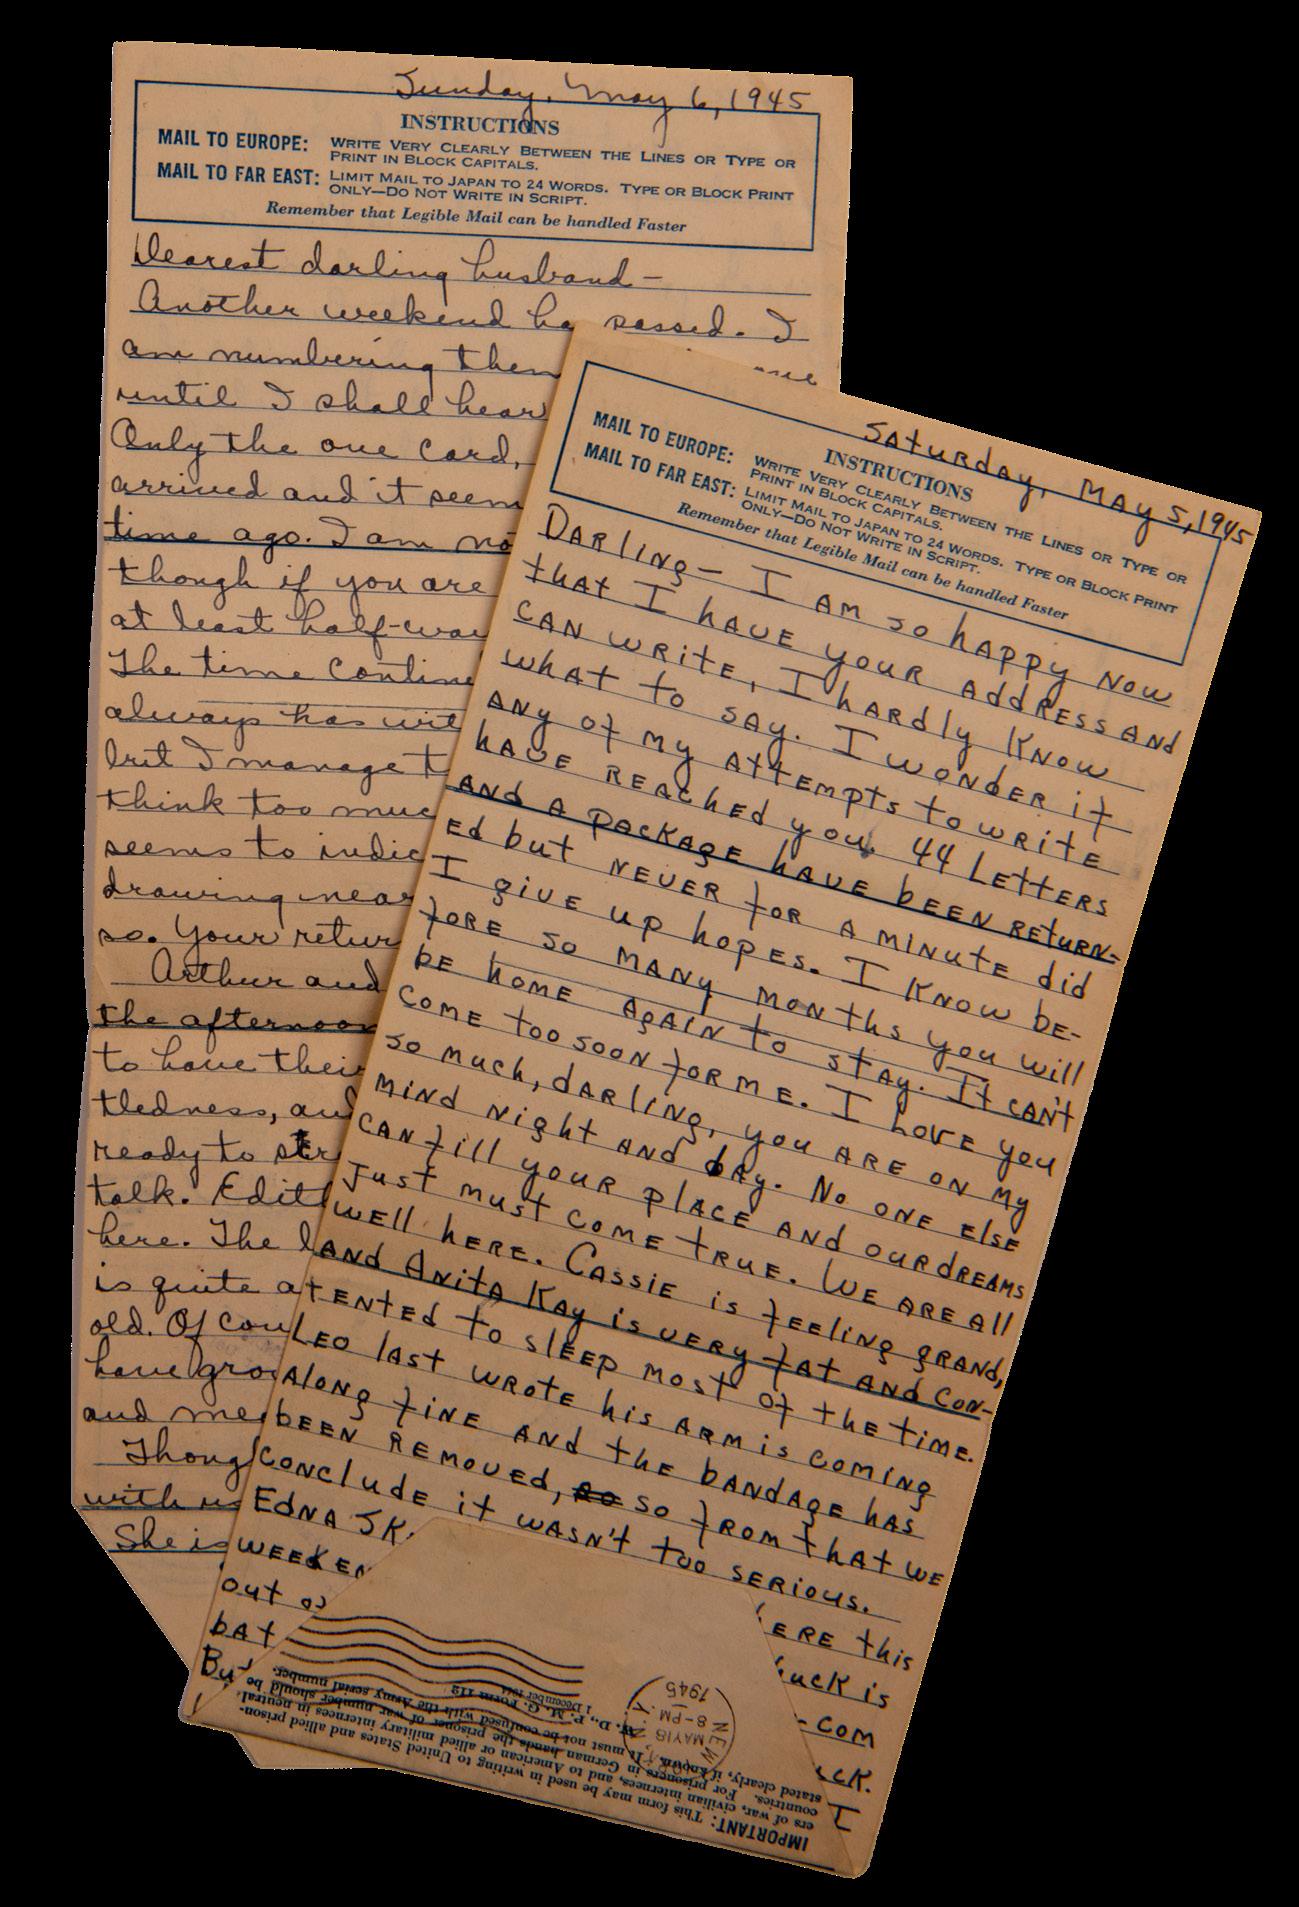 Sunday, May 6, 1945
INSTRUCTIONS
MAIL TO EUROPE: WRITE VERY CLEARLY BETWEEN THE LINES OR TYPE OR
PRINT IN BLOCK CAPITALS.
MAIL TO FAR EAST: LIMIT MAIL TO JAPAN TO 24 WORDS. TYPE OR BLOCK PRINT
ONLY—DO NOT WRITE IN SCRIPT.
Remember that Legible Mail can be handled Faster
Dearest darling husband—
Another weekend ha passed. I
am numbering them
until I shall hear
Only the one card,
arrived and it seem
time ago. I am no
though if you are
at least half-wa
The time contin
always has wit
but I manage t
think too muc
seems to indic
drawing near
so. Your retur
Arthur and
the afternoon
to have their
tledness, and
ready to
talk. Edit
here. The l
is quite a
old. Of cou
have gro
and me
Thoug
with us
She is
Saturday, May 5, 1945
INSTRUCTIONS
MAIL TO EUROPE: WRITE VERY CLEARLY BETWEEN THE LINES OR TYPE OR
PRINT IN BLOCK CAPITALS.
MAIL TO FAR EAST: LIMIT MAIL TO JAPAN TO 24 WORDS. TYPE OR BLOCK PRINT
ONLY—DO NOT WRITE IN SCRIPT.
Remember that Legible Mail can be handled Faster
Darling— I am so happy now
that I have your address and
can write, I hardly know
what to say. I wonder if
any of my attempts to write
have reached you. 44 letters
and a package have been return-
ed but never for a minute did
I give up hopes. I know be-
fore so many months you will
be home again to stay. It can't
come too soon for me. I love you
so much, darling, you are on my
mind night and day. No one else
can fill your place and our dreams
just must come true. We are all
well here. Cassie is feeling grand,
and Anita Kay is very fat and con-
tented to sleep most of the time.
Leo last wrote his arm is coming
along fine and the bandage has
been removed, so from that we
conclude it wasn't too serious.
Edna
weeken ere this
out uck is
bat -com
But ck.
I
NEW YORK, N.Y.
MAY 18
8-PM
1945
W. D., P. M. G. Form 112
1 December 1944
IMPORTANT: This form may be used in writing to United States and allied prison-
ers of war, civilian internees, and to American or allied military internees in neutral
countries. For prisoners in German hands the prisoner of war number should be
stated clearly, if known. It must not be confused with the Army serial number.